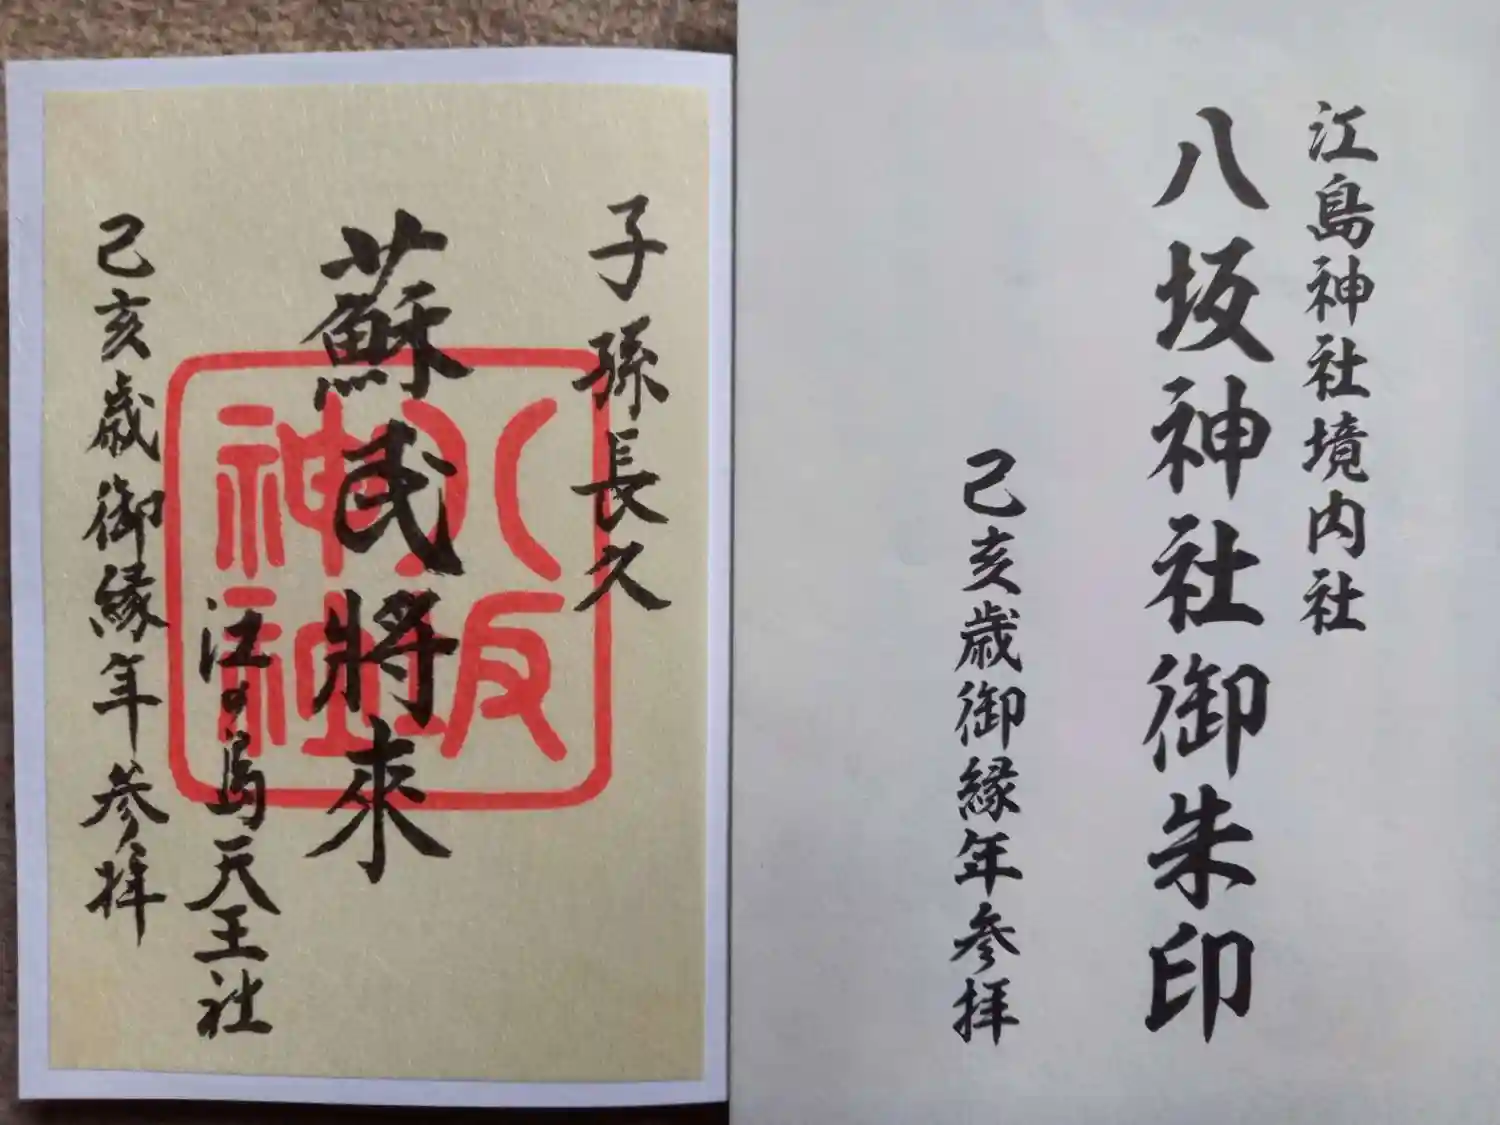 子孫長久
蘇民將来
江の島天王社
己亥歳御縁年参拝
八坂
神社
江島神社境内社
八坂神社御朱印
己亥歳御縁年参拝